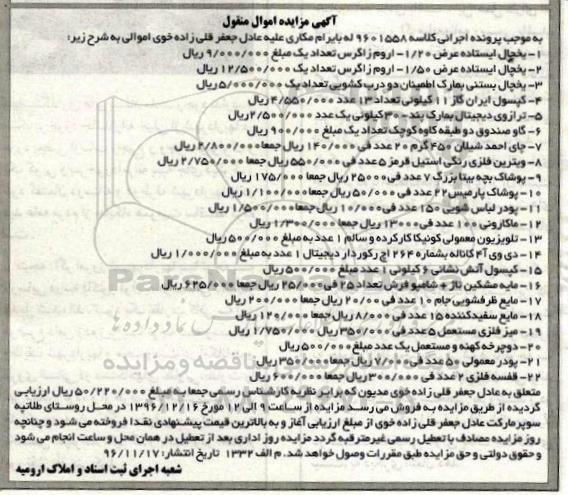 آگهی مزایده اموال منقول
به موجب پرونده اجرائی کلاسه ۹۶۰۱۵۵۸ له بایرام مکاری علیه عادل جعفر قلی زاده خوی اموالی به شرح زیر:
۱- یخچال ایستاده عرض ۱/۲۰- اروم زاگرس تعداد یک مبلغ ۹/۰۰۰/۰۰۰ ریال
۲- یخچال ایستاده عرض ۱/۵۰- اروم زاگرس تعداد یک ۱۲/۵۰۰/۰۰۰ ریال
۳- یخچال بستنی بمارک اطمینان دو درب کشویی تعداد یک ۵/۰۰۰/۰۰۰ ریال
۴- کپسول ایران گاز ۱۱ کیلوئی تعداد ۱۳ عدد ۴/۵۵۰/۰۰۰ ریال
۵- ترازوی دیجیتال بمارک پند ۳۰ کیلوئی یک عدد ۲/۵۰۰/۰۰۰ ریال
۶- گاو صندوق دو طبقه کاوه کوچک تعداد یک مبلغ ۹۰۰/۰۰۰ ریال
۷- چای احمد شیلان ۴۵۰ گرم ۲۰ عدد فی ۱۴۰/۰۰۰ ریال جمعا ۲/۸۰۰/۰۰۰ ریال
۸- ویترین فلزی رنگی استیل قرمز ۵ عدد فی ۵۵۰/۰۰۰ ریال جمعا ۲/۷۵۰/۰۰۰ ریال
۹- پوشاک بچه بیتا بزرگ ۷ عدد فی ۲۵۰۰۰ ریال جمعا ۱۷۵/۰۰۰ ریال
۱۰- پوشاک پارمیس ۲۲ عدد فی ۵۰/۰۰۰ ریال جمعا ۱/۱۰۰/۰۰۰ ریال
۱۱- پودر لباس شوئی ۱۵۰ عدد فی ۱۰/۰۰۰ ریال جمعا ۱/۵۰۰/۰۰۰ ریال
۱۲- ماکارونی ۱۰۰ عدد فی ۱۳۰۰۰ ریال جمعا ۱/۳۰۰/۰۰۰ ریال
۱۳- تلویزیون معمولی کونیکا کارکرده و سالم ۱ عدد به مبلغ ۵۰۰/۰۰۰ ریال
۱۴- دی وی آ ۴ کاناله بشماره ۲۶۴ اچ رکوردار دیجیتال ۱ عدد به مبلغ ۱/۰۰۰/۰۰۰ ریال
۱۵- کپسول آتش نشانی ۶ کیلوئی ۱ عدد مبلغ ۵۰۰/۰۰۰ ریال
۱۶- مایه مشکین تاژ + شامپو فرش تعداد ۲۵ فی ۲۵/۰۰۰ ریال جمعا ۶۲۵/۰۰۰ ریال
۱۷- مایع ظرفشویی جام ۱۰ عدد فی ۲۰/۰۰۰ ریال جمعا ۲۰۰/۰۰۰ ریال
۱۸- مایع سفیدکننده ۱۵ عدد فی ۸/۰۰۰ ریال جمعا ۱۲۰/۰۰۰ ریال
۱۹- میز فلزی مستعمل ۵ عدد فی ۳۵۰/۰۰۰ ریال ۱/۷۵۰/۰۰۰ ریال
۲۰- دوچرخه کهنه و مستعمل یک عدد مبلغ ۵۰۰/۰۰۰ ریال
۲۱- پودر معمولی ۵۰ عدد فی ۷/۰۰۰ ریال جمعا ۳۵۰/۰۰۰ ریال
۲۲- قفسه فلزی ۲ عدد فی ۳۰۰/۰۰۰ ریال جمعا ۶۰۰/۰۰۰ ریال
متعلق به عادل جعفر قلی زاده خوی مدیون که برابر نظریه کارشناس رسمی جمعا به مبلغ ۵۰/۲۲۰/۰۰۰ ریال ارزیابی
گردیده از طریق مزایده به فروش می رسد مزایده از ساعت ۹ الی ۱۲ مورخ ۱۳۹۶/۱۲/۱۶ در محل روستای طلاتپه
سوپر مارکت عادل جعفر قلی زاده خوی از مبلغ ارزیابی آغاز و به بالاترین قیمت پیشنهادی نقدا فروخته می شود و چنانچه
روز مزایده مصادف با تعطیل رسمی غیر مترقبه گردد مزایده روز اداری بعد از تعطیل در همان محل و ساعت انجام می شود
و حقوق دولتی و حق مزایده طبق مقررات وصول خواهد شد. م الف ۱۳۳۲ تاریخ انتشار: ۹۶/۱۱/۱۷
شعبه اجرای ثبت اسناد و املاک ارومیه